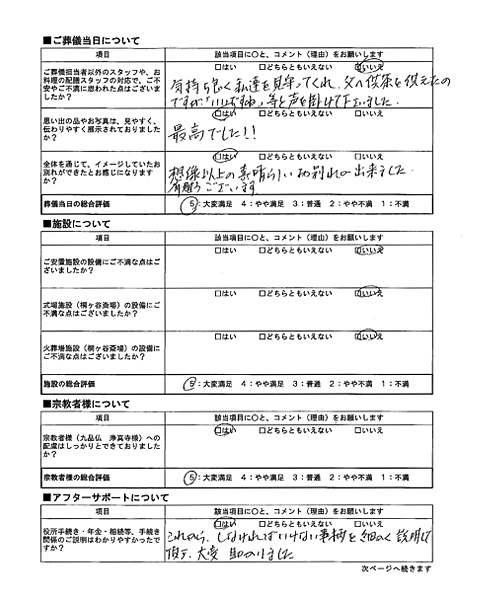 ■ご葬儀当日について
項目 該当項目に○と、コメント（理由）をお願いします
ご葬儀担当者以外のスタッフや、お
料理の配膳スタッフの対応で、ご不
安やご不満に思われた点はございま
したか？
□はい □どちらともいえない □いいえ
気持ち良く私達を見守ってくれ、父へ供茶を供えたの
ですが「いいですね」等と声を掛けて下さいました。
思い出の品やお写真は、見やすく、
伝わりやすく展示されておりました
か？
□はい □どちらともいえない □いいえ
最高でした！！
全体を通じて、イメージしていたお
別れができたとお感じになります
か？
□はい □どちらともいえない □いいえ
想像以上の素晴らしいお別れが出来ました。
有難うございます
葬儀当日の総合評価 5：大変満足 4：やや満足 3：普通 2：やや不満 1：不満
■施設について
項目 該当項目に○と、コメント（理由）をお願いします
ご安置施設の設備にご不満な点はご
ざいましたか？
□はい □どちらともいえない □いいえ
式場施設（桐ヶ谷斎場）の設備にご
不満な点はございましたか？
□はい □どちらともいえない □いいえ
火葬場施設（桐ヶ谷斎場）の設備に
ご不満な点はございましたか？
□はい □どちらともいえない □いいえ
施設の総合評価 5：大変満足 4：やや満足 3：普通 2：やや不満 1：不満
■宗教者様について
項目 該当項目に○と、コメント（理由）をお願いします
宗教者様（九品仏 浄真寺様）への
配慮はしっかりとできておりました
か？
□はい □どちらともいえない □いいえ
宗教者様の総合評価 5：大変満足 4：やや満足 3：普通 2：やや不満 1：不満
■アフターサポートについて
項目 該当項目に○と、コメント（理由）をお願いします
役所手続き・年金・相続等、手続き
関係のご説明はわかりやすかったで
すか？
□はい □どちらともいえない □いいえ
これから、しなければいけない事柄を細かく説明して
頂き、大変 助かりました
次ページへ続きます